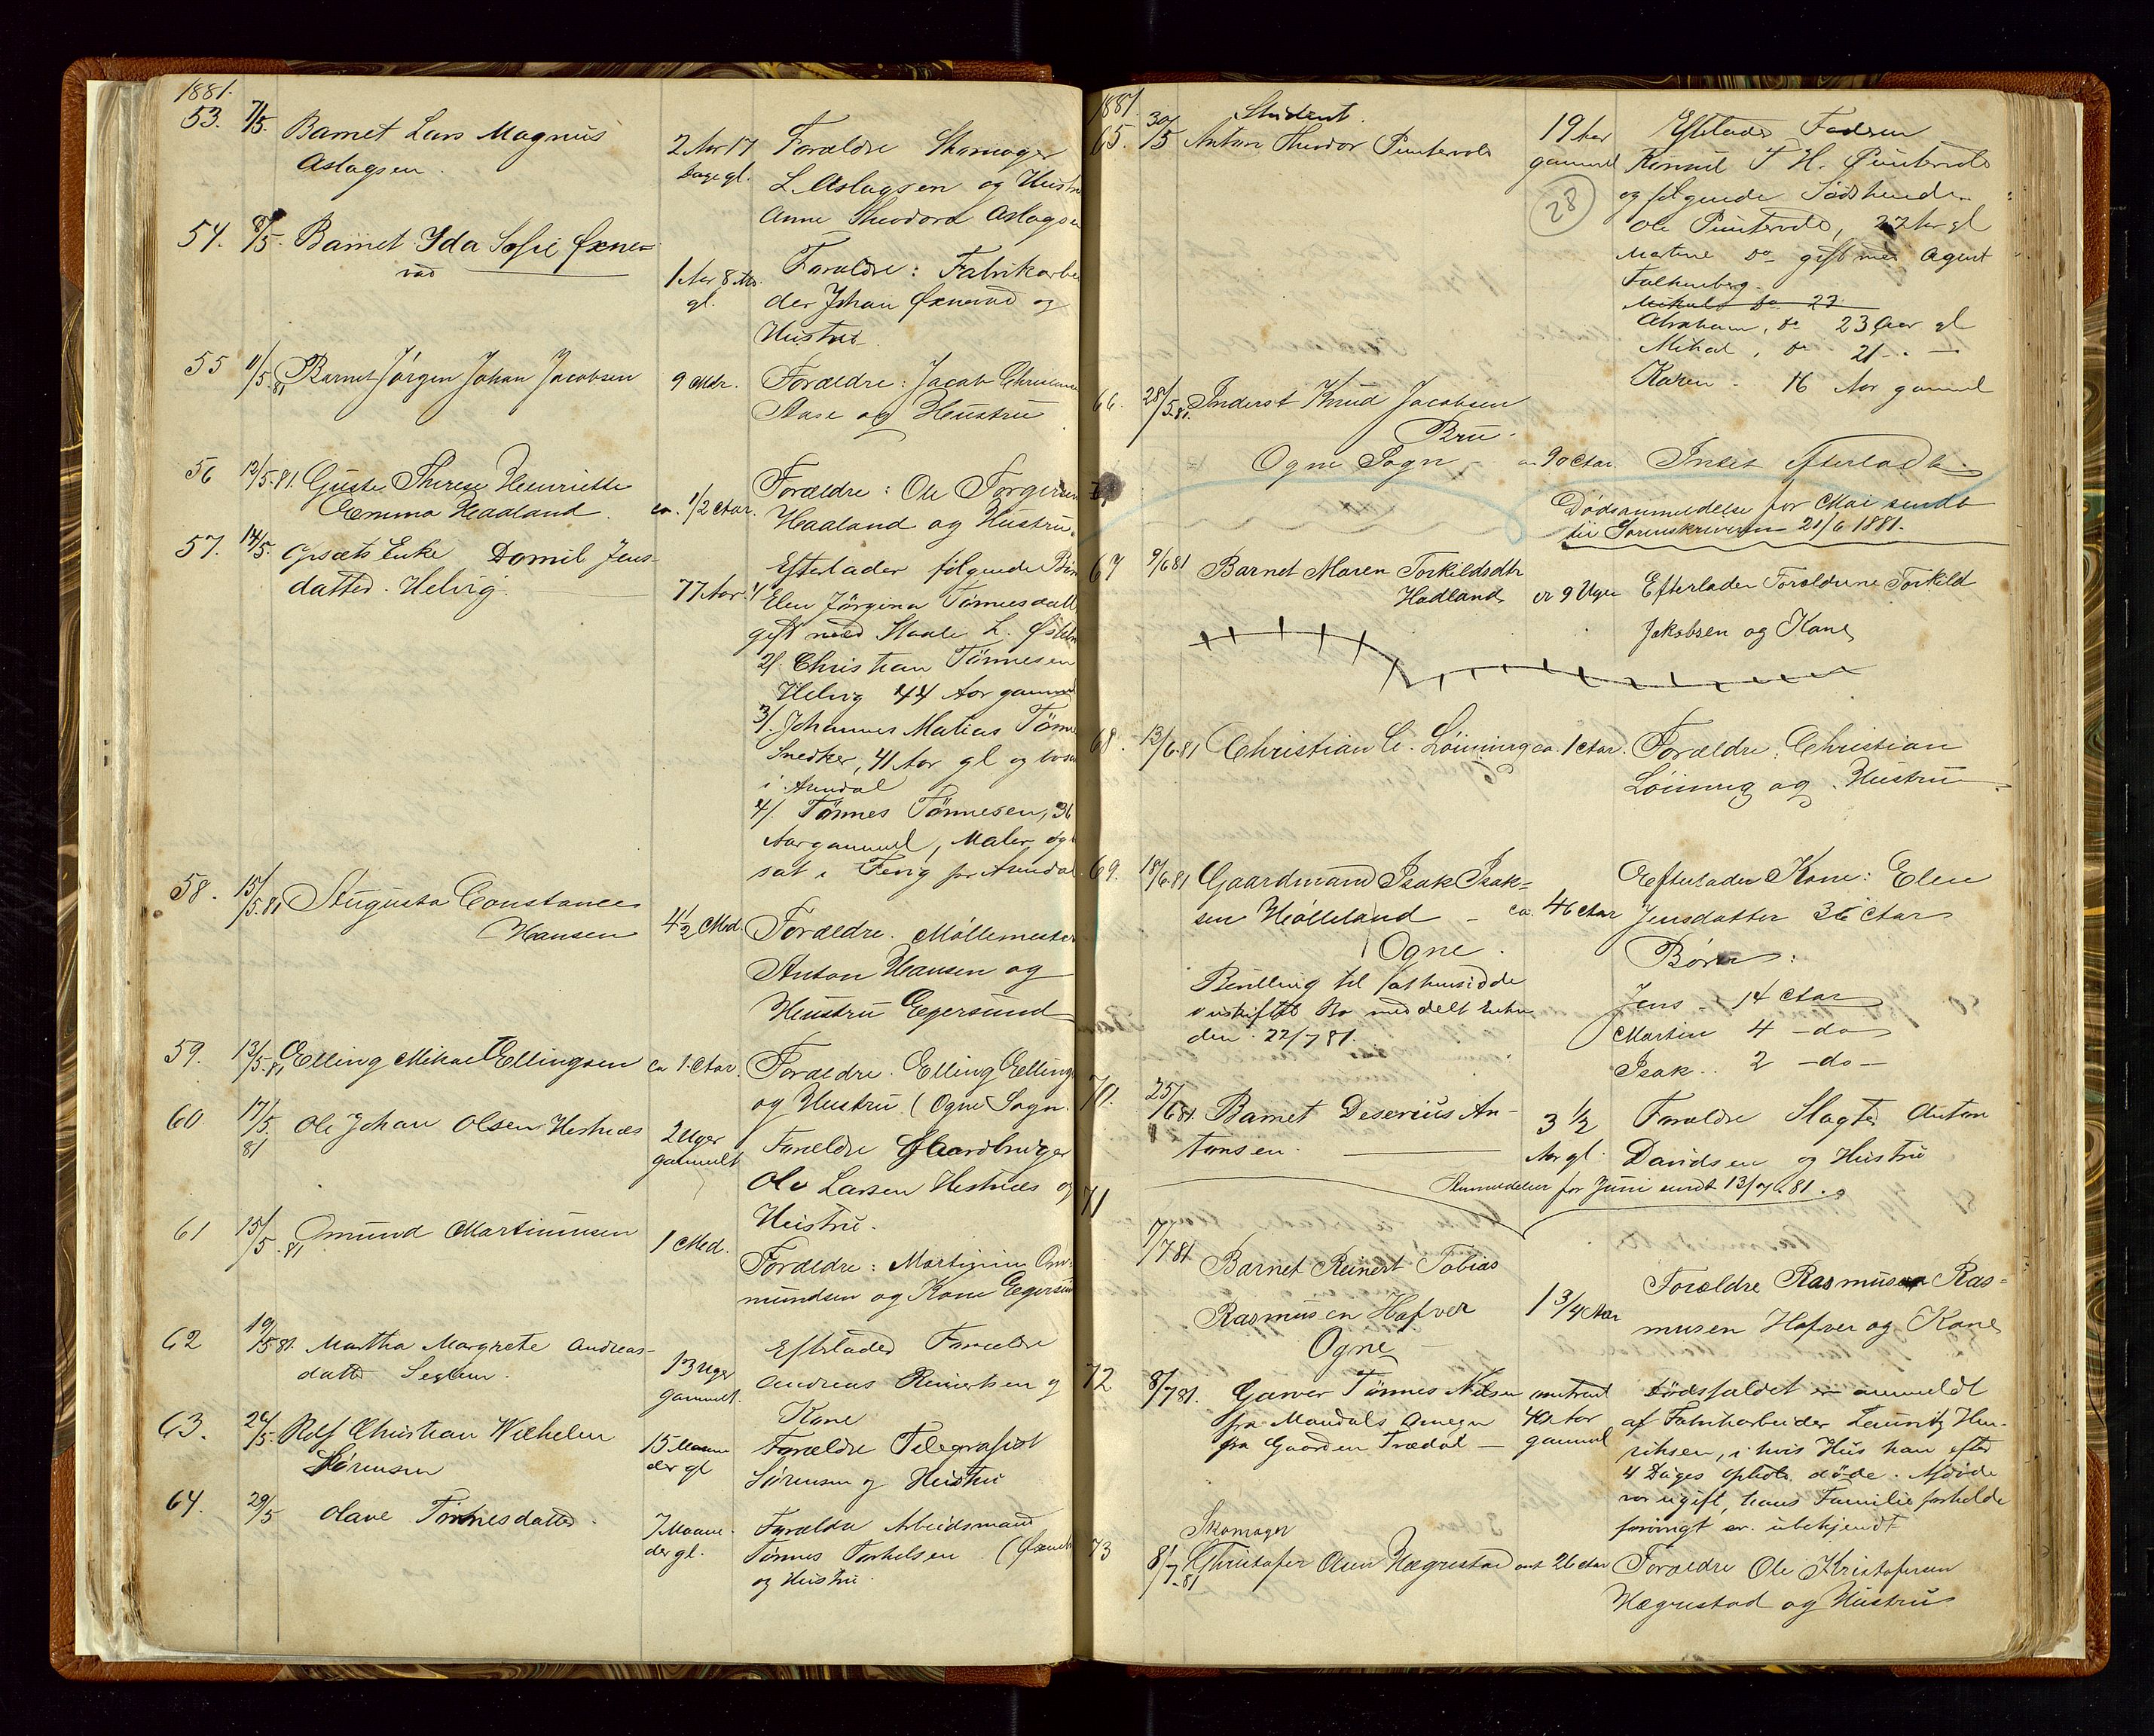 1881.
53. 7/5. Barnet Lars Magnus
Aslagsen.
2 Aar 17
Dage gl.
Forældre Skomager
L. Aslagsen og Hustru
Anne Theodora Aslagsen
54. 8/5. Barnet Ida Sofie Øxne=
vad
1 Aar 8 Md.
gl.
Forældre: Fabrikarbei
der Johan Øxnevad og
Hustru
55 11/5.81 Barnet Jörgen Johan Jacobsen
9 Mdr.
Forældre: Jacob
og Hustru
56 12/5.81. Guste Therese Henriette
Emma Haaland.
ca. 1/2 Aar.
Forældre: Ole Torgersen
Haaland og Hustru.
57. 14/5. Enke Domil Jens-
datter Helvig.
77 Aar.
Efterlader følgende Børn
1/ Elen Jörgine Tönnesdatt
gift med Staale L.
2/. Christian Tönnesen
Helvig 44 Aar gammel
3/. Johannes Matias Tönne
Snedker, 41 Aar gl og bosat
i Arendal
4/. Tönnes Tönnesen, 36
Aar gammel, Maler, og bo
sat i Fevig for Arendal
58. 15/5.81 Augusta Constance
Hansen
4 1/2 Md.
Forældre. Møllemester
Anton Hansen og
Hustru Egersund
59. 13/5.81 Elling Mikael Ellingsen
ca 1 Aar.
Forældre. Elling Elling
og Hustru (Ogne Sogn.
60. 17/5 81 Ole Johan Olsen Hestnes
2 Uger
gammelt
Forældre Gaardbruger
Ole Larsen Hestnes og
Hustru.
61 15/5.81 Omund Martinusen
1 Md.
Forældre: Martinius Om=
mundsen og Kone Egersund
62 19/5 81. Martha Margrete Andreas-
datter Seglem.
13 Uger
gammelt.
Efterlader Forældre
Andreas Reinertsen og
Kone
63. 26/5. Rolf Christian Wilhelm
Sörensen
15 Maane
der gl
Forældre Telegrafist
Sörensen og Hustru
64. 29/5 Olave Tönnesdatter.
7 Maane-
der gl.
Forældre Arbeidsmand
Tönnes Torkelsen
og Hustru.
1881.
Student.
65. 30/5 Anton Theodor Puntervold
19 Aar
gammel
28
Efterlader Faderen
Konsul T H. Puntervold
og følgende Södskende
Ole Puntervold, 27 Aar gl
Martine do gift med Agent
Falkenberg.
Mikal do 23
Abraham, do 23 Aar gl
Mikal, do 21 - -
Karen - 16 Aar gammel
66. 28/5.81. Inderst Knud Jacobsen
Bru.
Ogne Sogn - ca. 90 Aar.
Intet efterladt
Dødsanmeldelse for Mai sendt
til Sorenskriveren 21/6 1881.
67 9/6 81 Barnet Maren Torkildsdtr
Hadland
ca 9 Uger
Efterlader Forældrene Torkild
Jakobsen og Kone
68. 13/6.81 Christian C. Löining
ca. 1 Aar.
Forældre: Christian
Löining og Hustru
69. 18/6.81 Gaardmand Isak Isak=
sen Hölleland -
Ogne.
ca. 46 Aar
Efterlader Kone: Elen
Jensdatter 36 Aar
Børn:
Jens 14 Aar
Martin 4 -do-
Isak.. 2 -do-
Bevilling til at hensidde
i uskiftet Bo meddelt Enken
den 22/7 81.
70. 25/6 81 Barnet Deserius An-
tonsen.
3 1/2
Aar gl.
Forældre Slagter Anton
Davidsen og Hustru
Anmeldelser for Juni sendt 13/7.81.
71 7/7 81 Barnet Reinert Tobias
Rasmusen Hafver
Ogne
1 3/4 Aar
Forældre Rasmus Ras=
musen Hafver og Kone
72 8/7 81. Garver Tönnes Nilsen
fra Mandals Omegn
fra Gaarden Trædal -
omtrent
40 Aar
gammel
Dødsfaldet er anmeldt
af Fabrikarbeider Lauritz Hen-
riksen, i hvis Hus han efter
4 Dages Ophold døde. Afdøde
var ugift, hans Familieforholde
forøvrigt er ubekjendt
Skomager
73 8/7.81 Christofer Olsen Hægrestad
omt 26 Aar
Forældre Ole Kristofersen
Hægrestad og Hustru